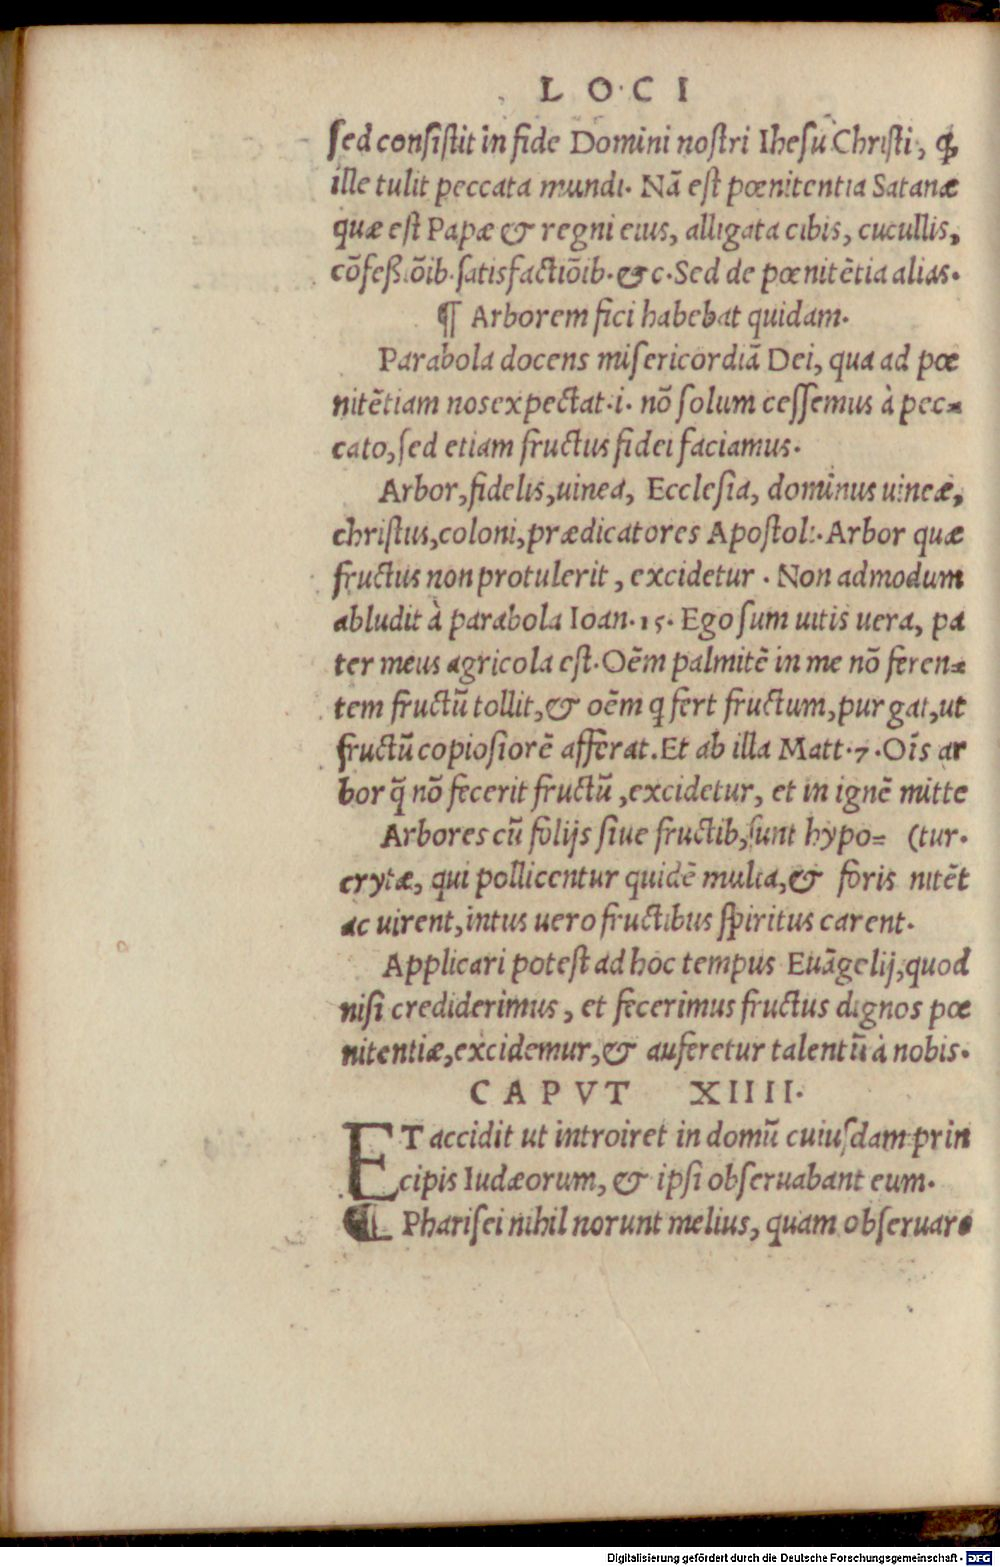 LOCI
sed consistit in fide Domini nostri Ihesu Christi, ꝙ
ille tulit peccata mundi. Nã est pœnitentia Satanæ
quæ est Papæ & regni eius, alligata cibis, cucullis,
cõfeßiõib. satisfactiõib. &c. Sed de pœnitẽtia alias.
¶ Arborem fici habebat quidam.
Parabola docens misericordiã Dei, qua ad pœ
nitẽtiam nos expectat .i. nõ solum cessemus à pec=
cato, sed etiam fructus fidei faciamus.
Arbor, fidelis, uinea, Ecclesia, dominus uineæ,
christus, coloni, prædicatores Apostoli. Arbor quæ
fructus non protulerit, excidetur. Non admodum
abludit à parabola Ioan. 15. Ego sum uitis uera, pa
ter meus agricola est. Oẽm palmitẽ in me nõ feren=
tem fructũ tollit, & oẽm q fert fructum, purgat, ut
fructũ copiosiorẽ afferat. Et ab illa Matt. 7. Oĩs ar
bor q̃ nõ fecerit fructũ, excidetur, et in ignẽ mitte
Arbores cũ folijs siue fructib, sunt hypo= (tur.
crytæ, qui pollicentur quidẽ multa, & foris nitẽt
ac uirent, intus uero fructibus spiritus carent.
Applicari potest ad hoc tempus Euãgelij, quod
nisi crediderimus, et fecerimus fructus dignos pœ
nitentiæ, excidemur, & auferetur talentũ à nobis.
CAPVT XIIII.
ET accidit ut introiret in domũ cuiusdam prin
cipis Iudæorum, & ipsi obseruabant eum.
¶ Pharisei nihil norunt melius, quam obseruare
Digitalisierung gefördert durch die Deutsche Forschungsgemeinschaft - DFG